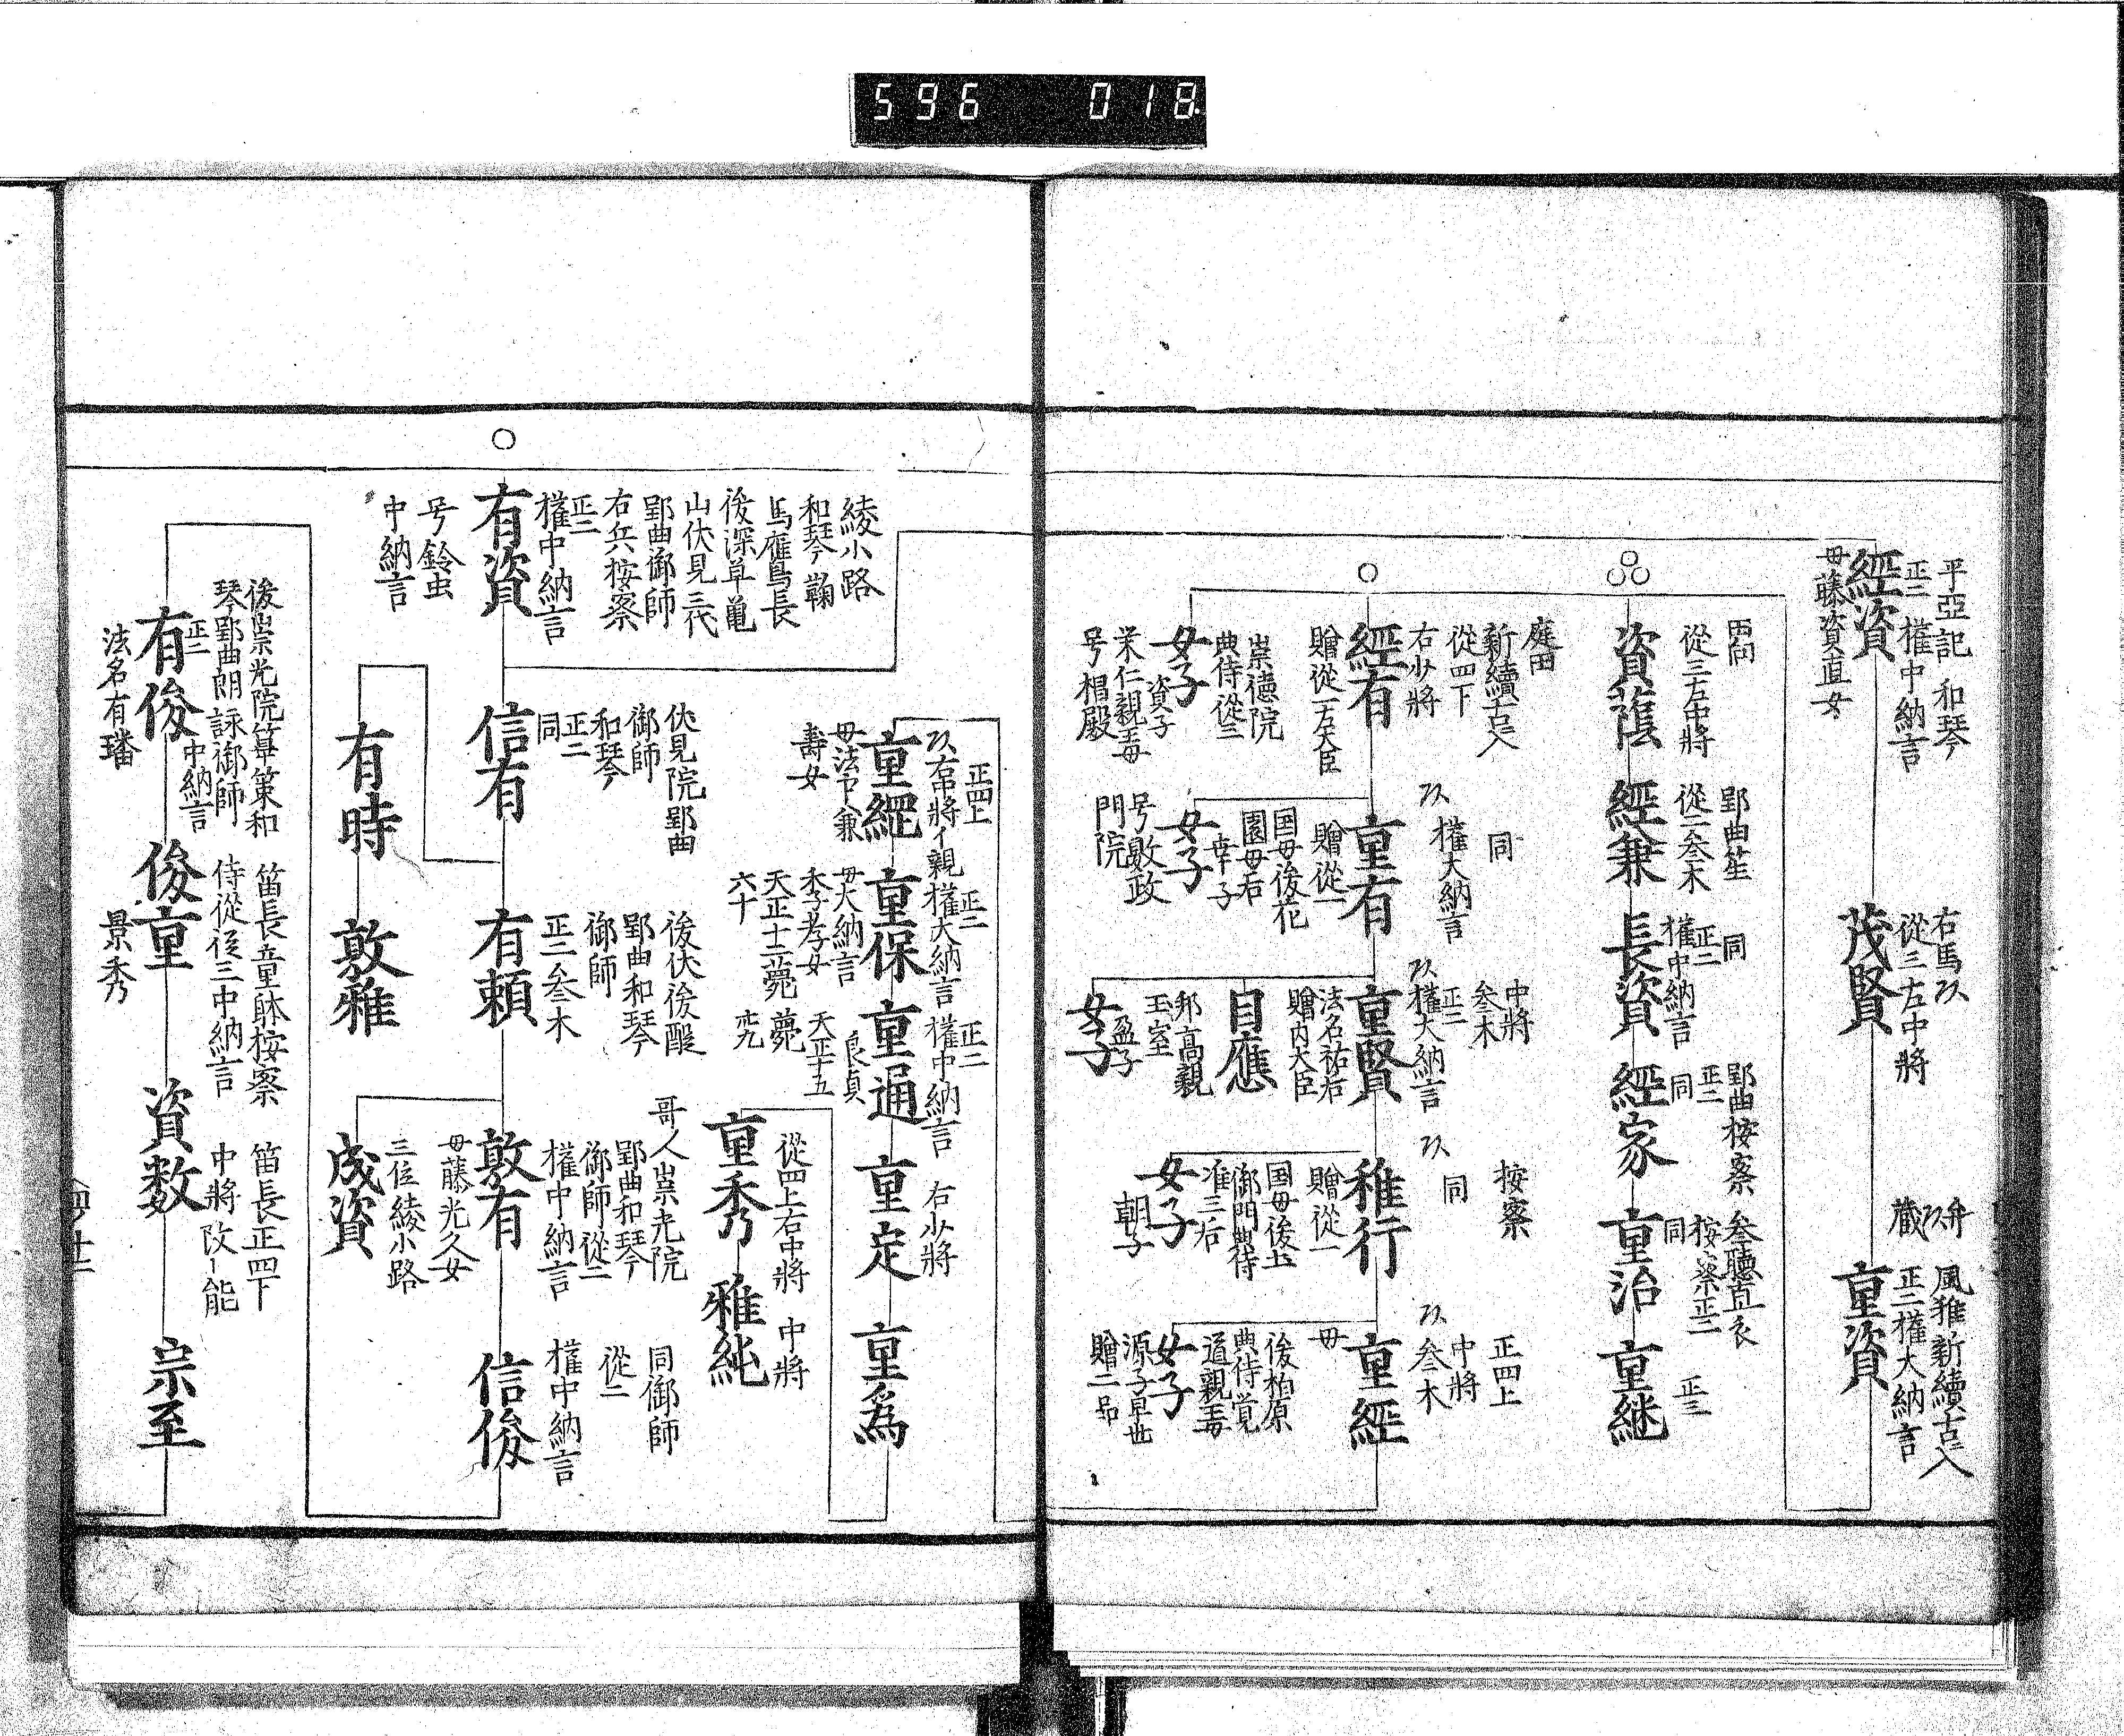 596 018
平亜記 和琴
正二 権中納言
經資
母藤資直女
右馬頭
從三左中將
茂賢
風雅新續古今入
正二権大納言
重資
從三左中將
資蔭
郢曲笙
從二参木
經兼
同
正二
権中納言
長資
郢曲按察
正二
同
經家
参聴直衣
按察正二
同
重治
正三
重継
庭田
新續古今入
從四下
右少將
經有
贈從一左大臣
崇徳院
典侍從三
女子
資子
栄仁親王母
同
権大納言
重有
贈從一
国母後花
園母后
幸子
女子
号敷政
門院
中將
参木
正二
権大納言
重賢
法名祐右
贈内大臣
自應
邦高親
王室
盈子
女子
按察
同
雅行
贈從一
国母後土
御門典侍
准三后
女子
朝子
正四上
中將
参木
重經
母
後柏原
典侍覚
道親王母
女子
源子早世
贈二品
正四上
右中將イ親
重継
母法印兼
壽女
正二
権大納言
重保
母大納言
天正十二薨
六十
正二
権中納言
重通
良貞
天正十五
薨
右少將
重定
重為
從四上右中將
重秀
中將
雅純
綾小路
和琴 鞠
馬鷹鳥長
後深草亀
山伏見三代
郢曲御師
右兵按察
正二
権中納言
有資
号鈴虫
中納言
伏見院郢曲
御師
和琴
正二
同
信有
後伏後醍
郢曲和琴
御師
正二参木
有頼
哥人崇光院
郢曲和琴
御師從二
権中納言
敦有
母藤光久女
三位綾小路
成資
同御師
從二
権中納言
信俊
有時
敦雅
後崇光院篳篥和
琴郢曲朗詠御師
正二
中納言
有俊
法名有璠
笛長童躰按察
侍從從三中納言
俊重
景秀
笛長正四下
中將 改能
資数
宗至